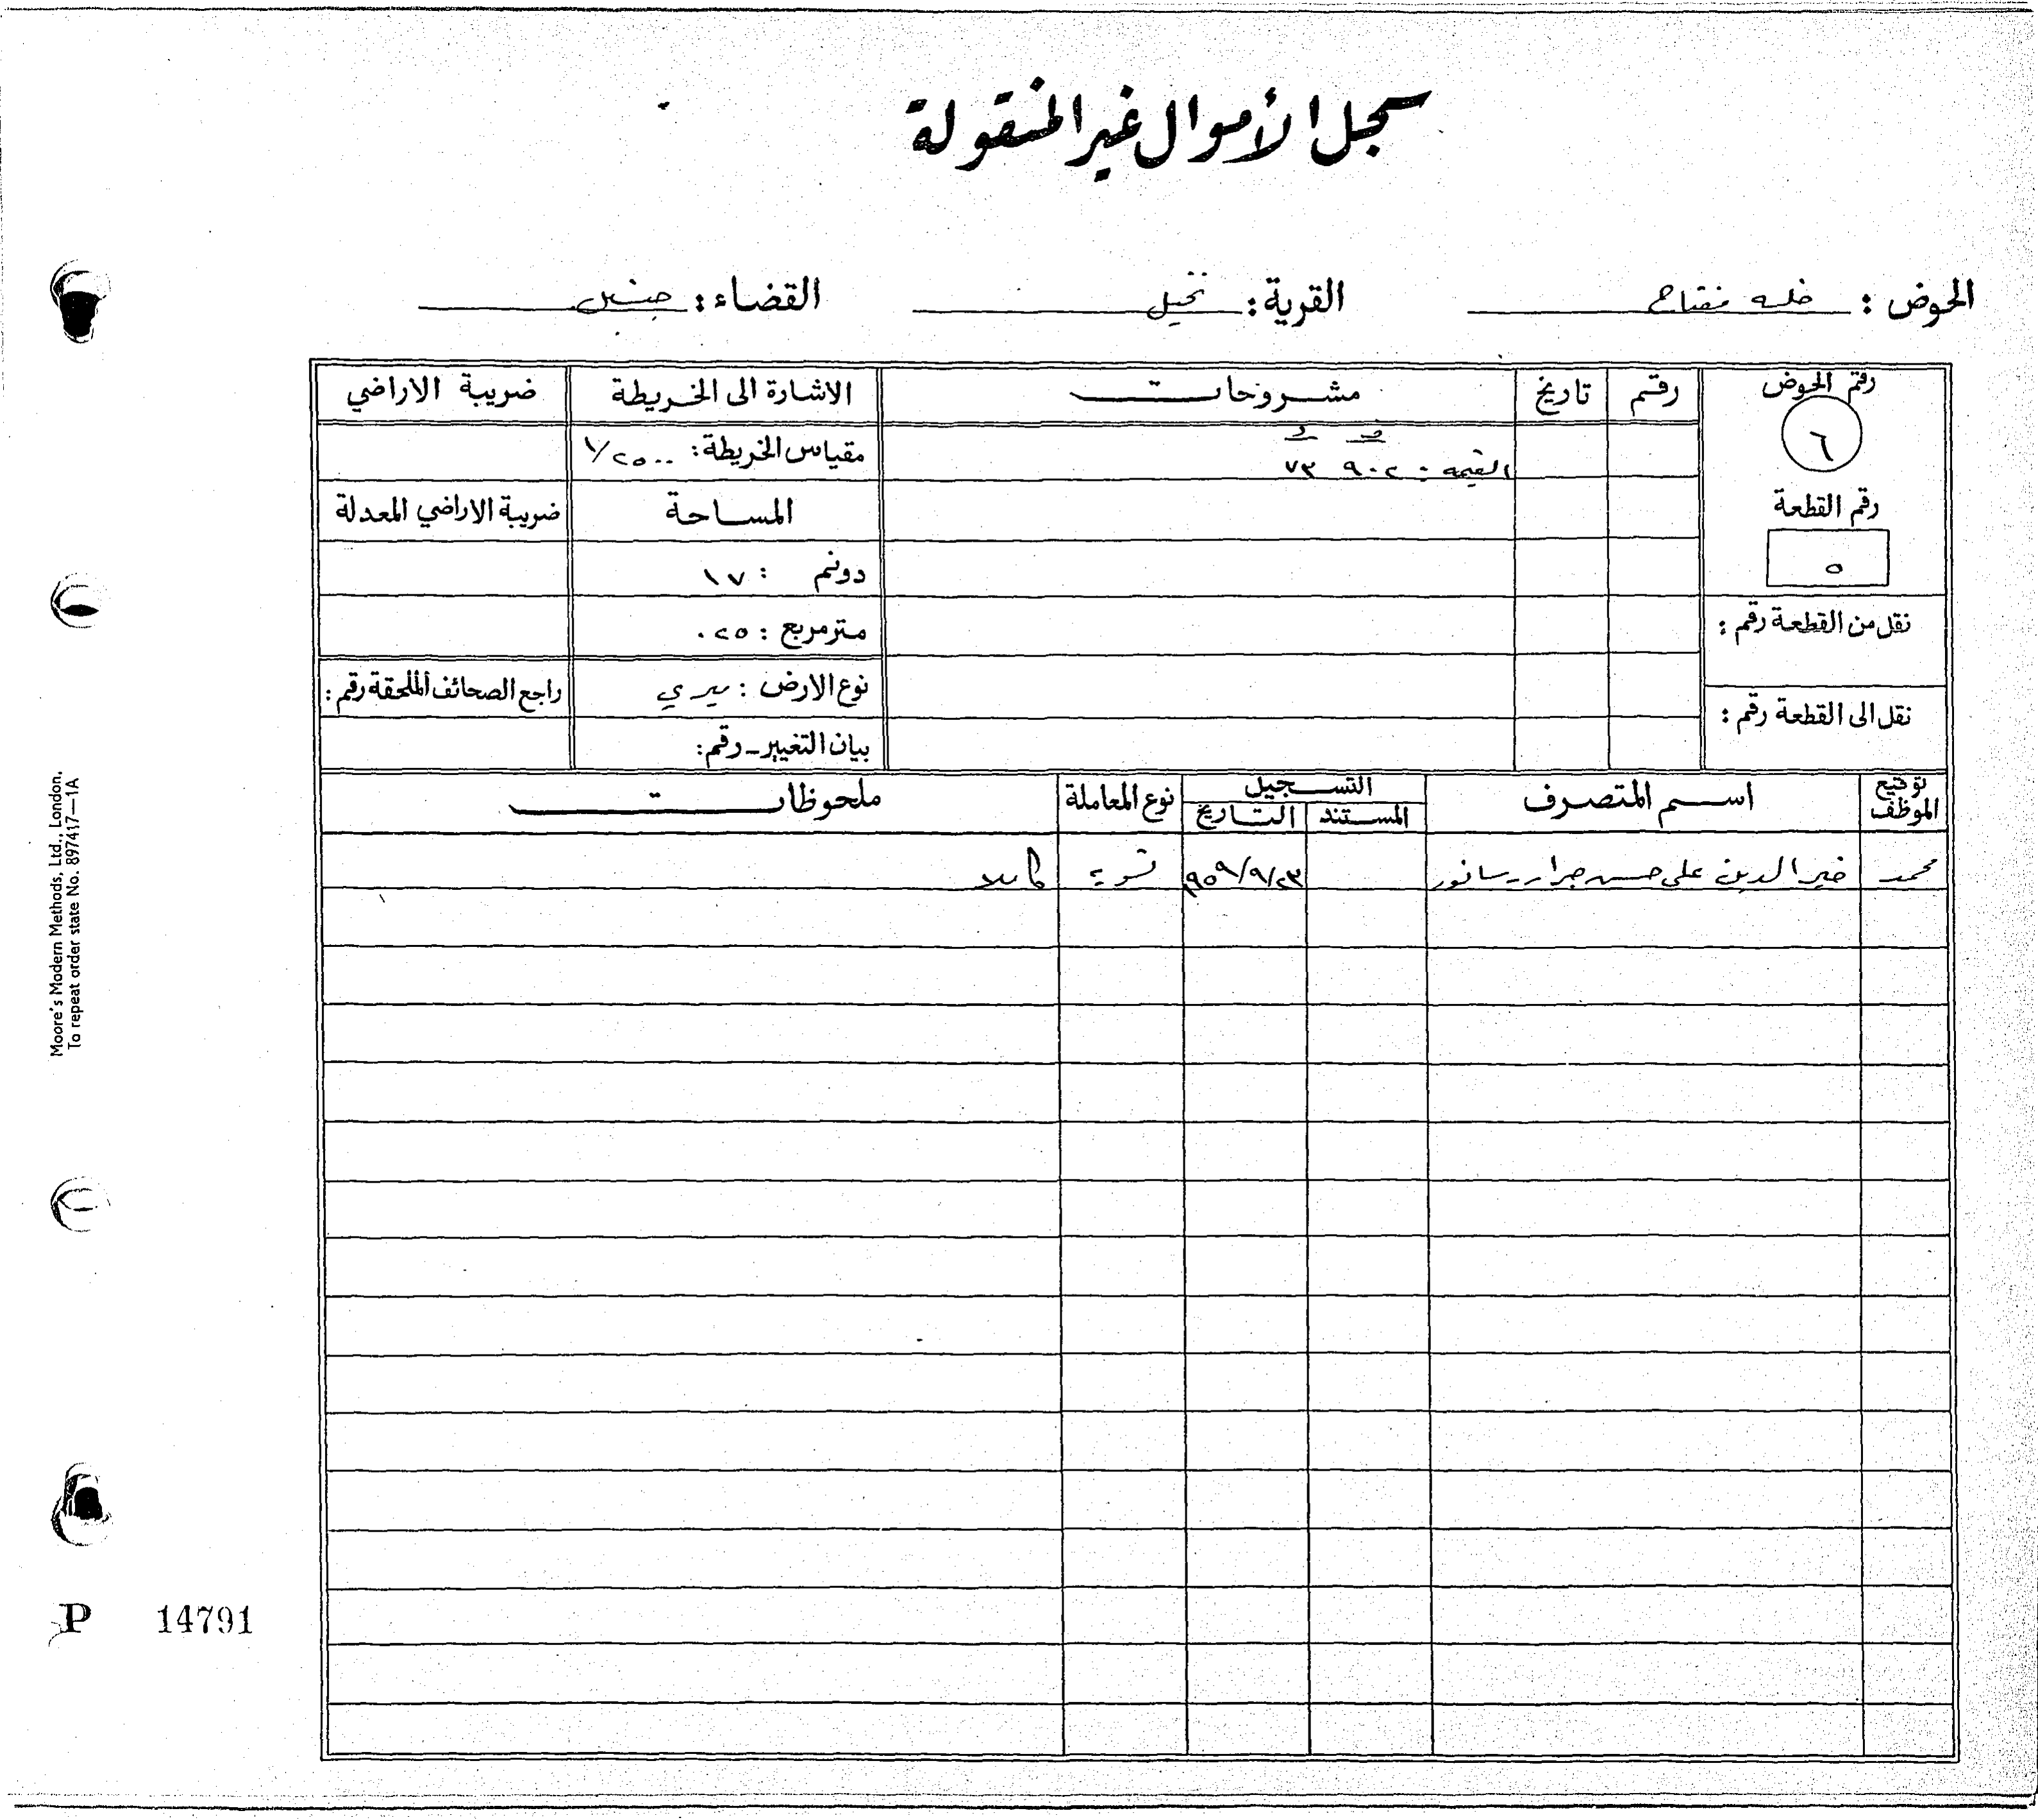 سجل الأموال غير المنقولة
الحوض : خلة مفتاح القرية : نخيل القضاء : جنين
رقم الحوض رقم تاريخ مشروحات الاشارة الى الخريطة ضريبة الاراضي
٦
القيمة : ٩٠٢ ٧٣
مقياس الخريطة : ١/٢٥٠٠
رقم القطعة
٥
المساحة
ضريبة الاراضي المعدلة
دونم : ١٧
نقل من القطعة رقم :
متر مربع : ٠٢٥
نوع الارض : ميري
راجع الصحائف الملحقة رقم :
نقل الى القطعة رقم :
بيان التغيير - رقم :
توقيع الموظف اسم المتصرف التسجيل نوع المعاملة ملحوظات
المستند التاريخ
محمد خير الدين علي حسن جرار - سانور ٩٥٩/٩/٢٣ تسوية كاملا
Moore's Modern Methods, Ltd., London,
To repeat order state No. 897417—1A
P 14791